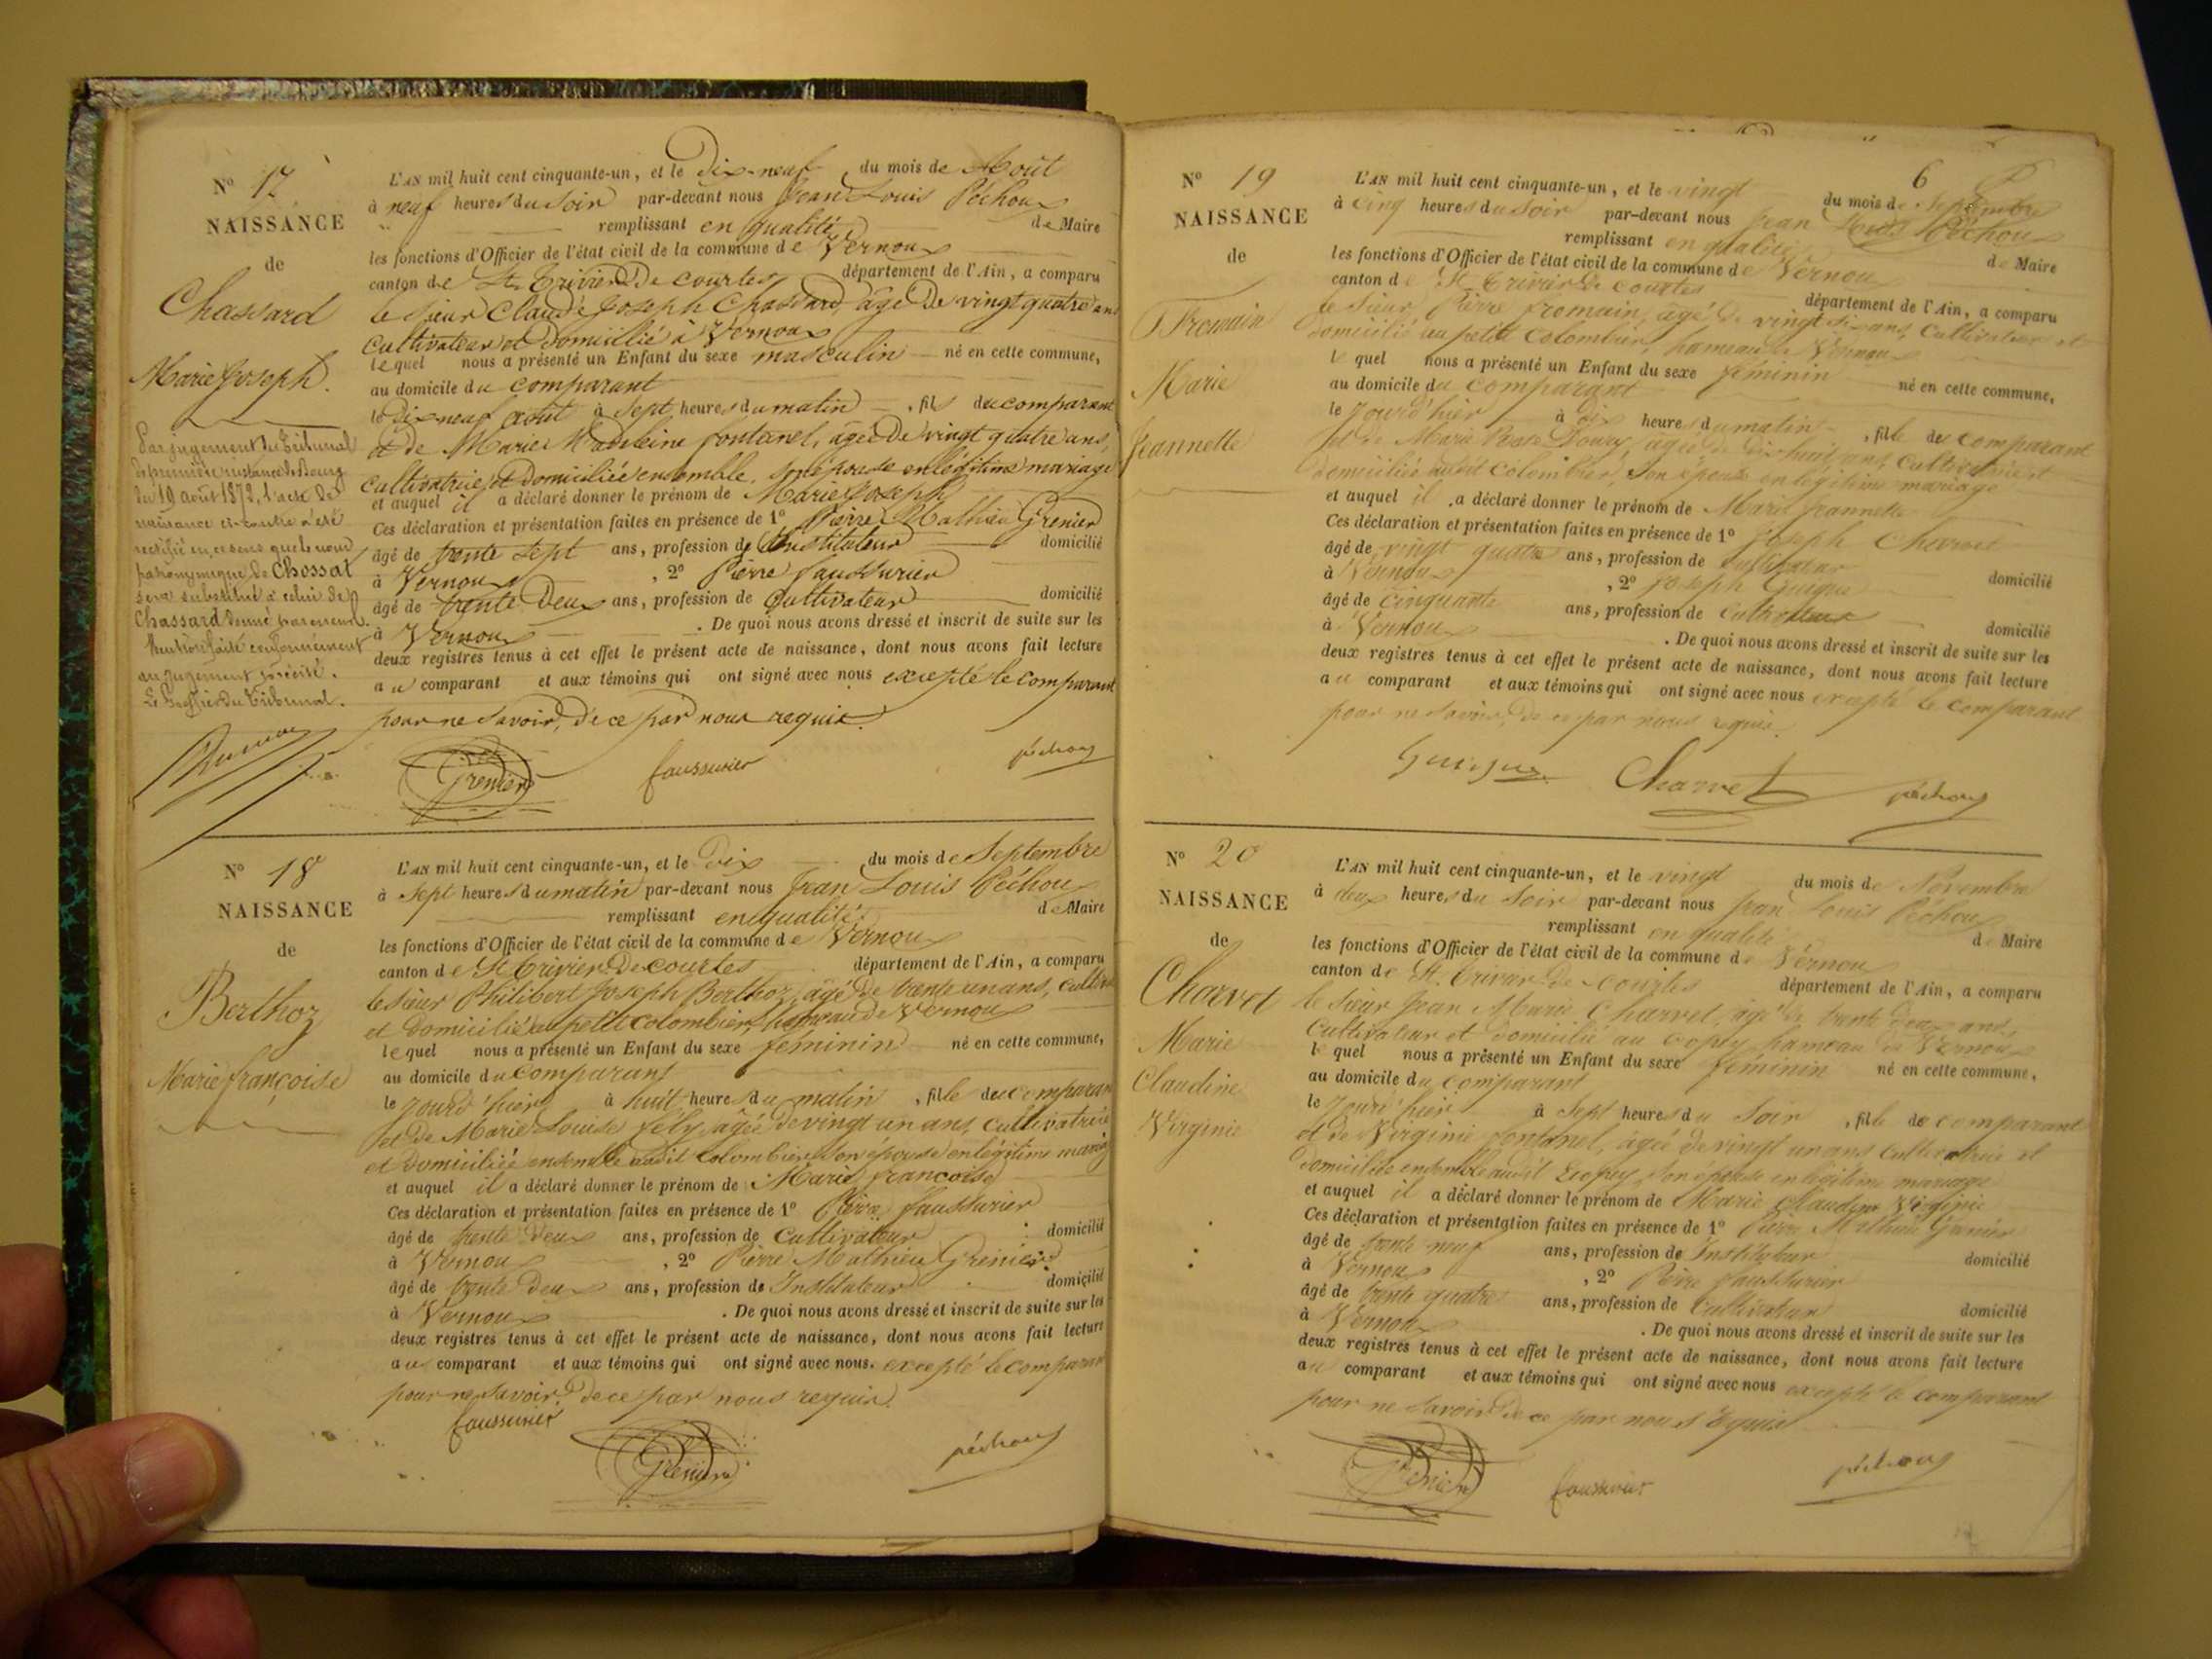 N° 17
NAISSANCE
de
Chassard
Marie Joseph.
Par jugement du Tribunal
de première instance de Bourg
du 19 août 1872, l'acte de
naissance ci-contre a été
rectifié en ce sens que le nom
patronymique de Chossat
sera substitué à celui de
Chassard donné par erreur.
Mention faite conformément
au jugement précité.
Le Greffier du Tribunal.
L'AN mil huit cent cinquante-un, et le Dix-neuf du mois de Août
à neuf heures du Soir par-devant nous Jean Louis Péchoux
remplissant en qualité de Maire
les fonctions d'Officier de l'état civil de la commune de Vernoux
canton de St Trivier De courtes département de l'Ain, a comparu
le sieur Claude Joseph Chassard, âgé De vingt quatre ans
Cultivateur et domicilié à Vernoux
lequel nous a présenté un Enfant du sexe masculin né en cette commune,
au domicile du comparant
le dix neuf août à Sept heures du matin, fils du comparant
et de Marie Madeleine fontanel, âgée De vingt quatre ans,
cultivatrice et Domiciliée ensemble, son épouse en légitime mariage
et auquel il a déclaré donner le prénom de Marie Joseph
Ces déclaration et présentation faites en présence de 1° Pierre Mathieu Grenier
âgé de trente sept ans, profession de Instituteur domicilié
à Vernoux, 2° Pierre faussurier
âgé de trente Deux ans, profession de Cultivateur domicilié
à Vernoux. De quoi nous avons dressé et inscrit de suite sur les
deux registres tenus à cet effet le présent acte de naissance, dont nous avons fait lecture
au comparant et aux témoins qui ont signé avec nous excepté le comparant
pour ne Savoir, de ce par nous requis.
Grenier faussurier péchoux
N° 18
NAISSANCE
de
Berthoz
Marie françoise
L'AN mil huit cent cinquante-un, et le Dix du mois de Septembre
à Sept heures du matin par-devant nous Jean Louis Péchoux
remplissant en qualité de Maire
les fonctions d'Officier de l'état civil de la commune de Vernoux
canton de St Trivier De courtes département de l'Ain, a comparu
le sieur Philibert Joseph Berthoz, âgé De trente un ans,
et domicilié au petit colombier, hameau De Vernoux
lequel nous a présenté un Enfant du sexe féminin né en cette commune,
au domicile du Comparant
le jourd'hier à huit heures du matin, fille du comparant
et De Marie Louise fély, âgée De vingt un ans, cultivatrice
et domiciliée ensemble audit Colombier, son épouse en légitime
et auquel il a déclaré donner le prénom de Marie françoise
Ces déclaration et présentation faites en présence de 1° Pierre faussurier
âgé de trente Deux ans, profession de Cultivateur domicilié
à Vernoux, 2° Pierre Mathieu Grenier
âgé de trente Deux ans, profession de Instituteur domicilié
à Vernoux. De quoi nous avons dressé et inscrit de suite sur les
deux registres tenus à cet effet le présent acte de naissance, dont nous avons fait lecture
au comparant et aux témoins qui ont signé avec nous. excepté le comparant
pour ne Savoir, De ce par nous requis.
faussurier
Grenier péchoux
6
N° 19
NAISSANCE
de
Fromain
Marie
Jeannette
L'AN mil huit cent cinquante-un, et le vingt du mois de Septembre
à Cinq heures du Soir par-devant nous Jean Louis Péchoux
remplissant en qualité de Maire
les fonctions d'Officier de l'état civil de la commune de Vernoux
canton de St Trivier De courtes département de l'Ain, a comparu
le Sieur Pierre fromain, âgé de vingt six ans, Cultivateur et
domicilié au petit Colombier, hameau de Vernoux
lequel nous a présenté un Enfant du sexe féminin né en cette commune,
au domicile du comparant
le jourd'hier à dix heures du matin, fille du comparant
et de Marie âgée de Dix huit ans, Cultivatrice et
domiciliée audit Colombier, Son épouse en légitime mariage
et auquel il a déclaré donner le prénom de Marie Jeannette
Ces déclaration et présentation faites en présence de 1° Joseph Charvet
âgé de vingt quatre ans, profession de Cultivateur domicilié
à Vernoux, 2° Joseph Guigue
âgé de Cinquante ans, profession de Cultivateur domicilié
à Vernoux. De quoi nous avons dressé et inscrit de suite sur les
deux registres tenus à cet effet le présent acte de naissance, dont nous avons fait lecture
au comparant et aux témoins qui ont signé avec nous excepté le comparant
pour ne Savoir, De ce par nous requis.
Guigue Charvet péchoux
N° 20
NAISSANCE
de
Charvet
Marie
Claudine
Virginie
L'AN mil huit cent cinquante-un, et le vingt du mois de Novembre
à deux heures du Soir par-devant nous Jean Louis Péchoux
remplissant en qualité de Maire
les fonctions d'Officier de l'état civil de la commune de Vernoux
canton de St. Trivier De courtes département de l'Ain, a comparu
le Sieur Jean Marie Charvet, âgé de trente deux ans,
Cultivateur et domicilié au hameau de Vernoux
lequel nous a présenté un Enfant du sexe féminin né en cette commune,
au domicile du comparant
le jourd'hier à Sept heures du Soir, fille du comparant
et de Virginie fontanel, âgée de vingt un ans cultivatrice et
domiciliée ensemble audit son épouse en légitime mariage
et auquel il a déclaré donner le prénom de Marie Claudine Virginie
Ces déclaration et présentation faites en présence de 1° Pierre Mathieu Grenier
âgé de trente neuf ans, profession de Instituteur domicilié
à Vernoux, 2° Pierre faussurier
âgé de trente quatre ans, profession de Cultivateur domicilié
à Vernoux. De quoi nous avons dressé et inscrit de suite sur les
deux registres tenus à cet effet le présent acte de naissance, dont nous avons fait lecture
au comparant et aux témoins qui ont signé avec nous excepté le comparant
pour ne Savoir De ce par nous requis
Grenier faussurier péchoux